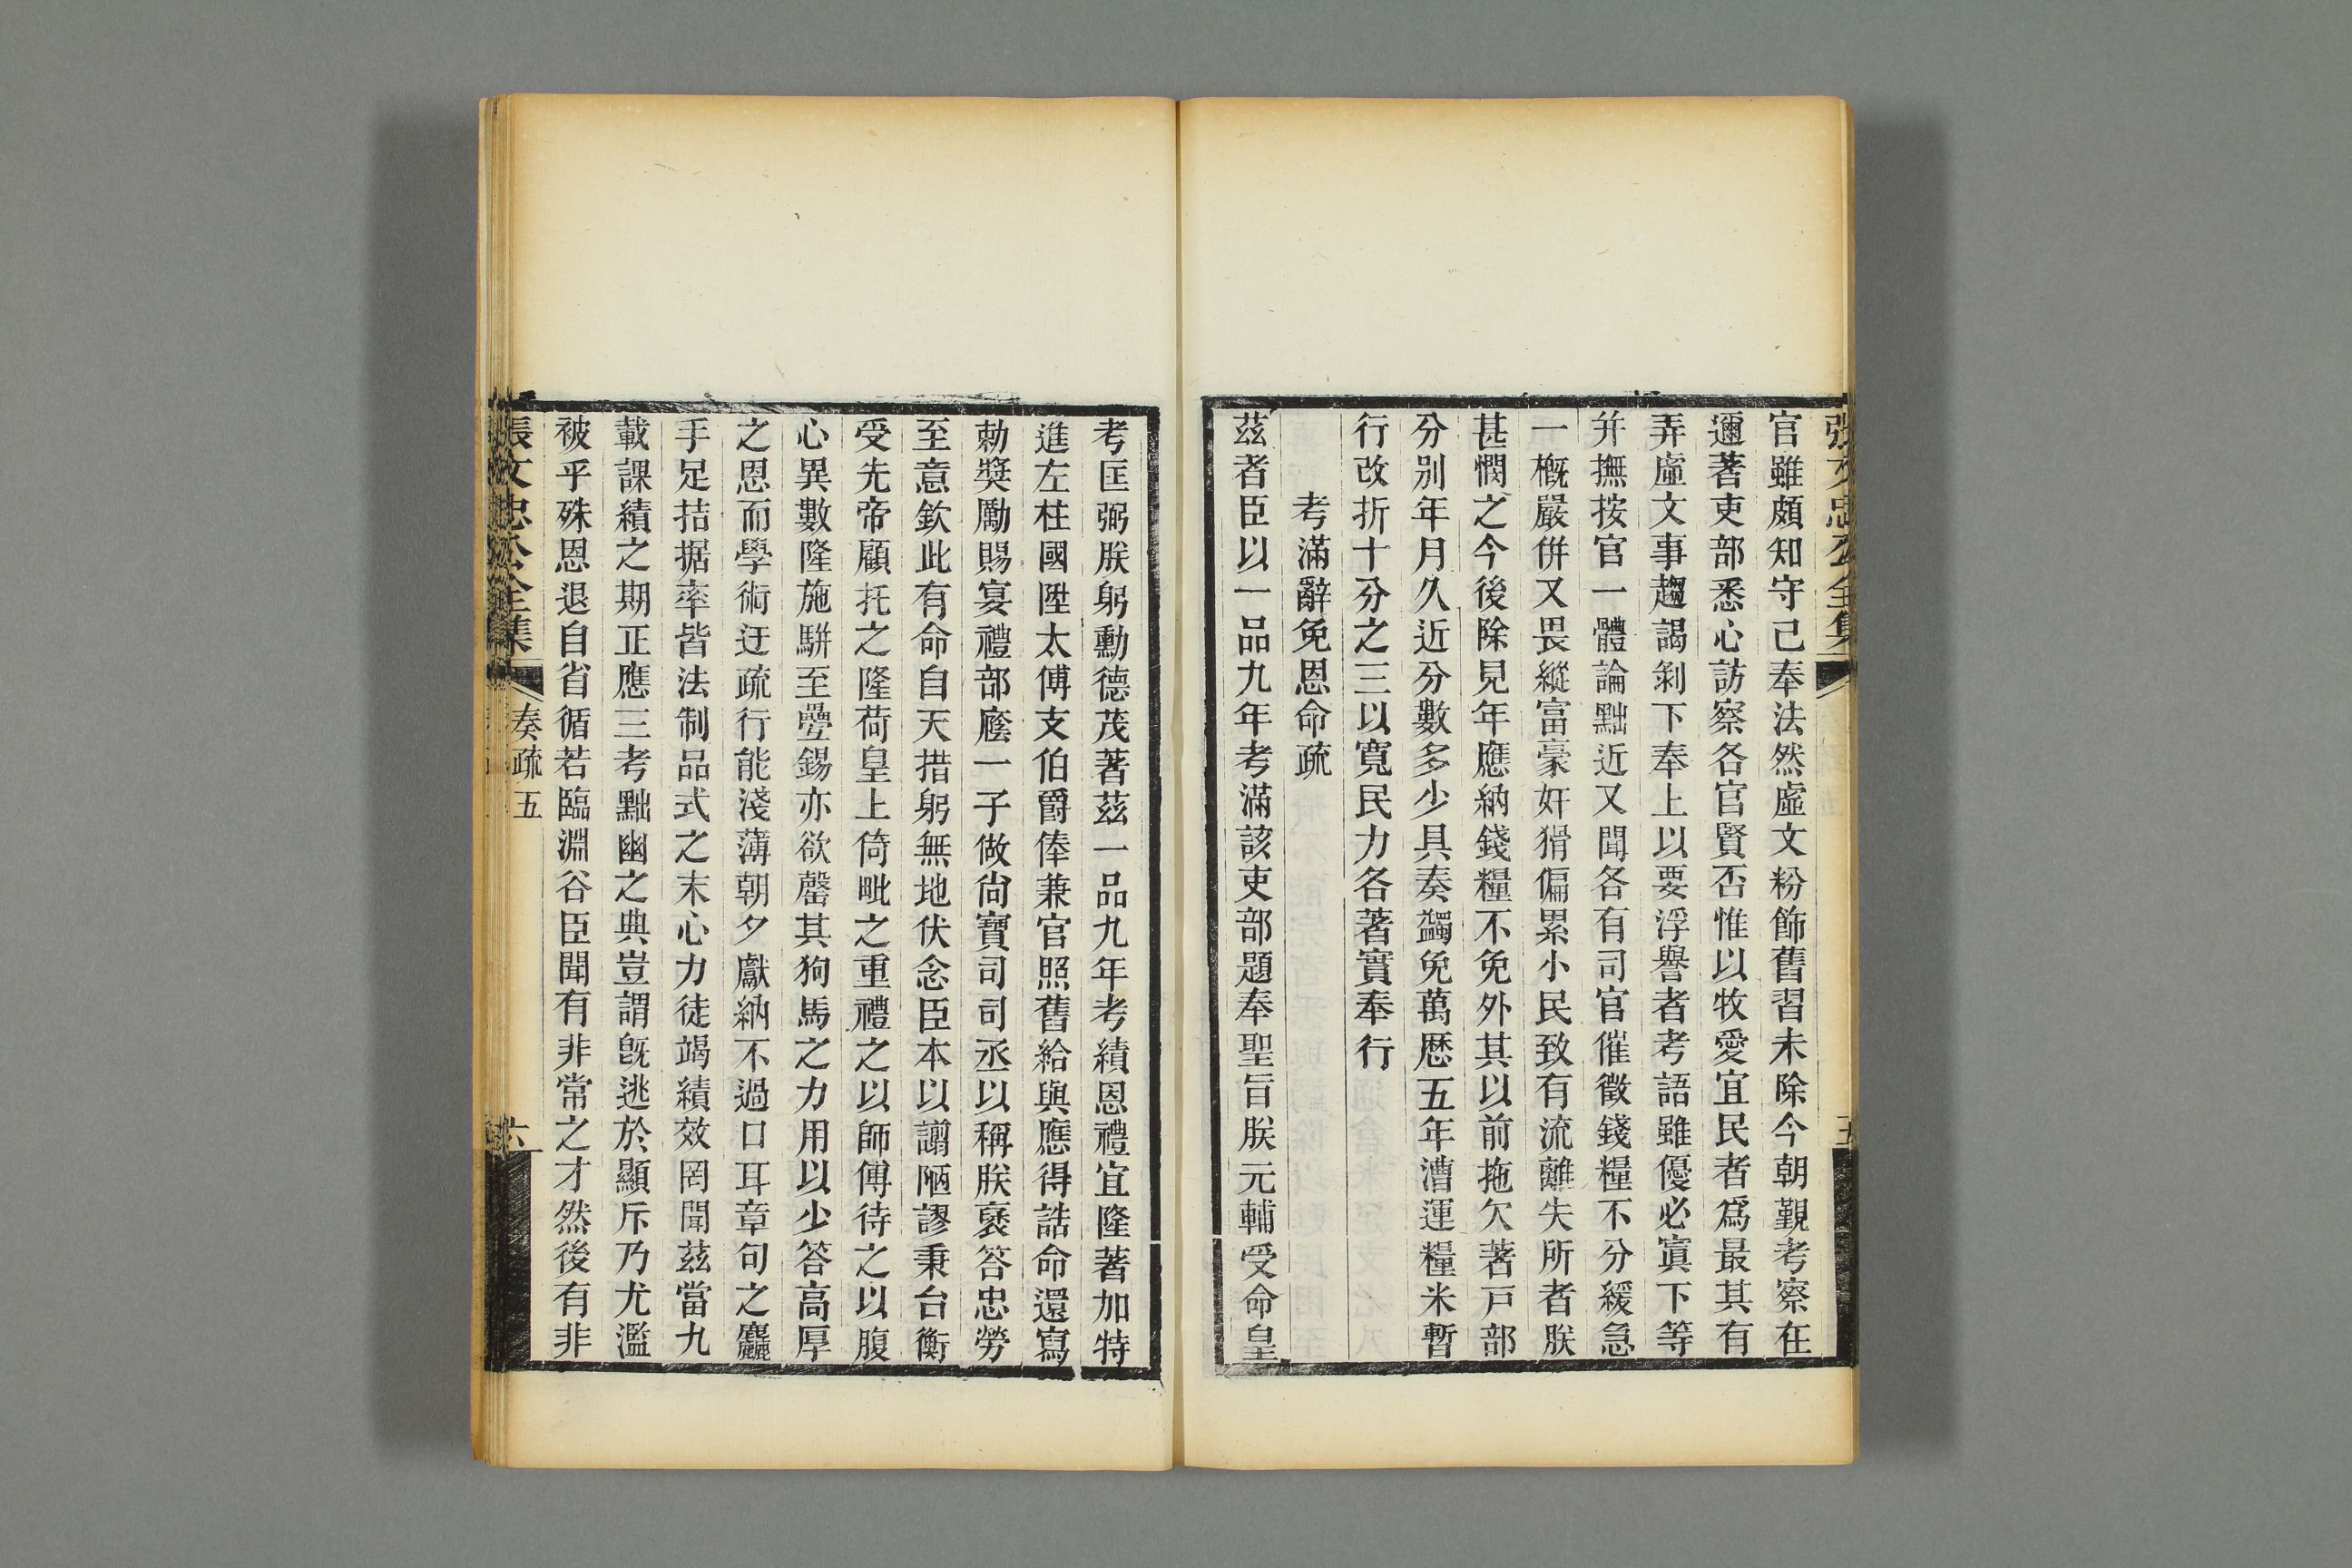 官雖頗知守己奉法然虛文粉飾舊習未除今朝覲考察在
邇著吏部悉心訪察各官賢否惟以牧愛宜民者爲最其有
弄虛文事趨謁剝下奉上以要浮譽者考語雖優必寘下等
并撫按官一體論黜近又聞各有司官催徵錢糧不分緩急
一概嚴併又畏縱富豪奸猾偏累小民致有流離失所者朕
甚憫之今後除見年應納錢糧不免外其以前拖欠著戸部
分別年月久近分數多少具奏蠲免萬厯五年漕運糧米暫
行改折十分之三以寬民力各著實奉行
考滿辭免恩命疏
茲者臣以一品九年考滿該吏部題奉聖旨朕元輔受命皇
考匡弼朕躬勳德茂著茲一品九年考績恩禮宜隆著加特
進左柱國陞太傅支伯爵俸兼官照舊給與應得誥命還寫
勅獎勵賜宴禮部廕一子做尙寶司司丞以稱朕襃答忠勞
至意欽此有命自天措躬無地伏念臣本以譾陋謬秉台衡
受先帝顧托之隆荷皇上倚毗之重禮之以師傅待之以腹
心異數隆施駢至疊錫亦欲罄其狗馬之力用以少答高厚
之恩而學術迂疏行能淺薄朝夕獻納不過口耳章句之麤
手足拮据率皆法制品式之末心力徒竭績效罔聞茲當九
載課績之期正應三考黜幽之典豈謂旣逃於顯斥乃尤濫
被乎殊恩退自省循若臨淵谷臣聞有非常之才然後有非
張文忠公全集 奏疏五 六